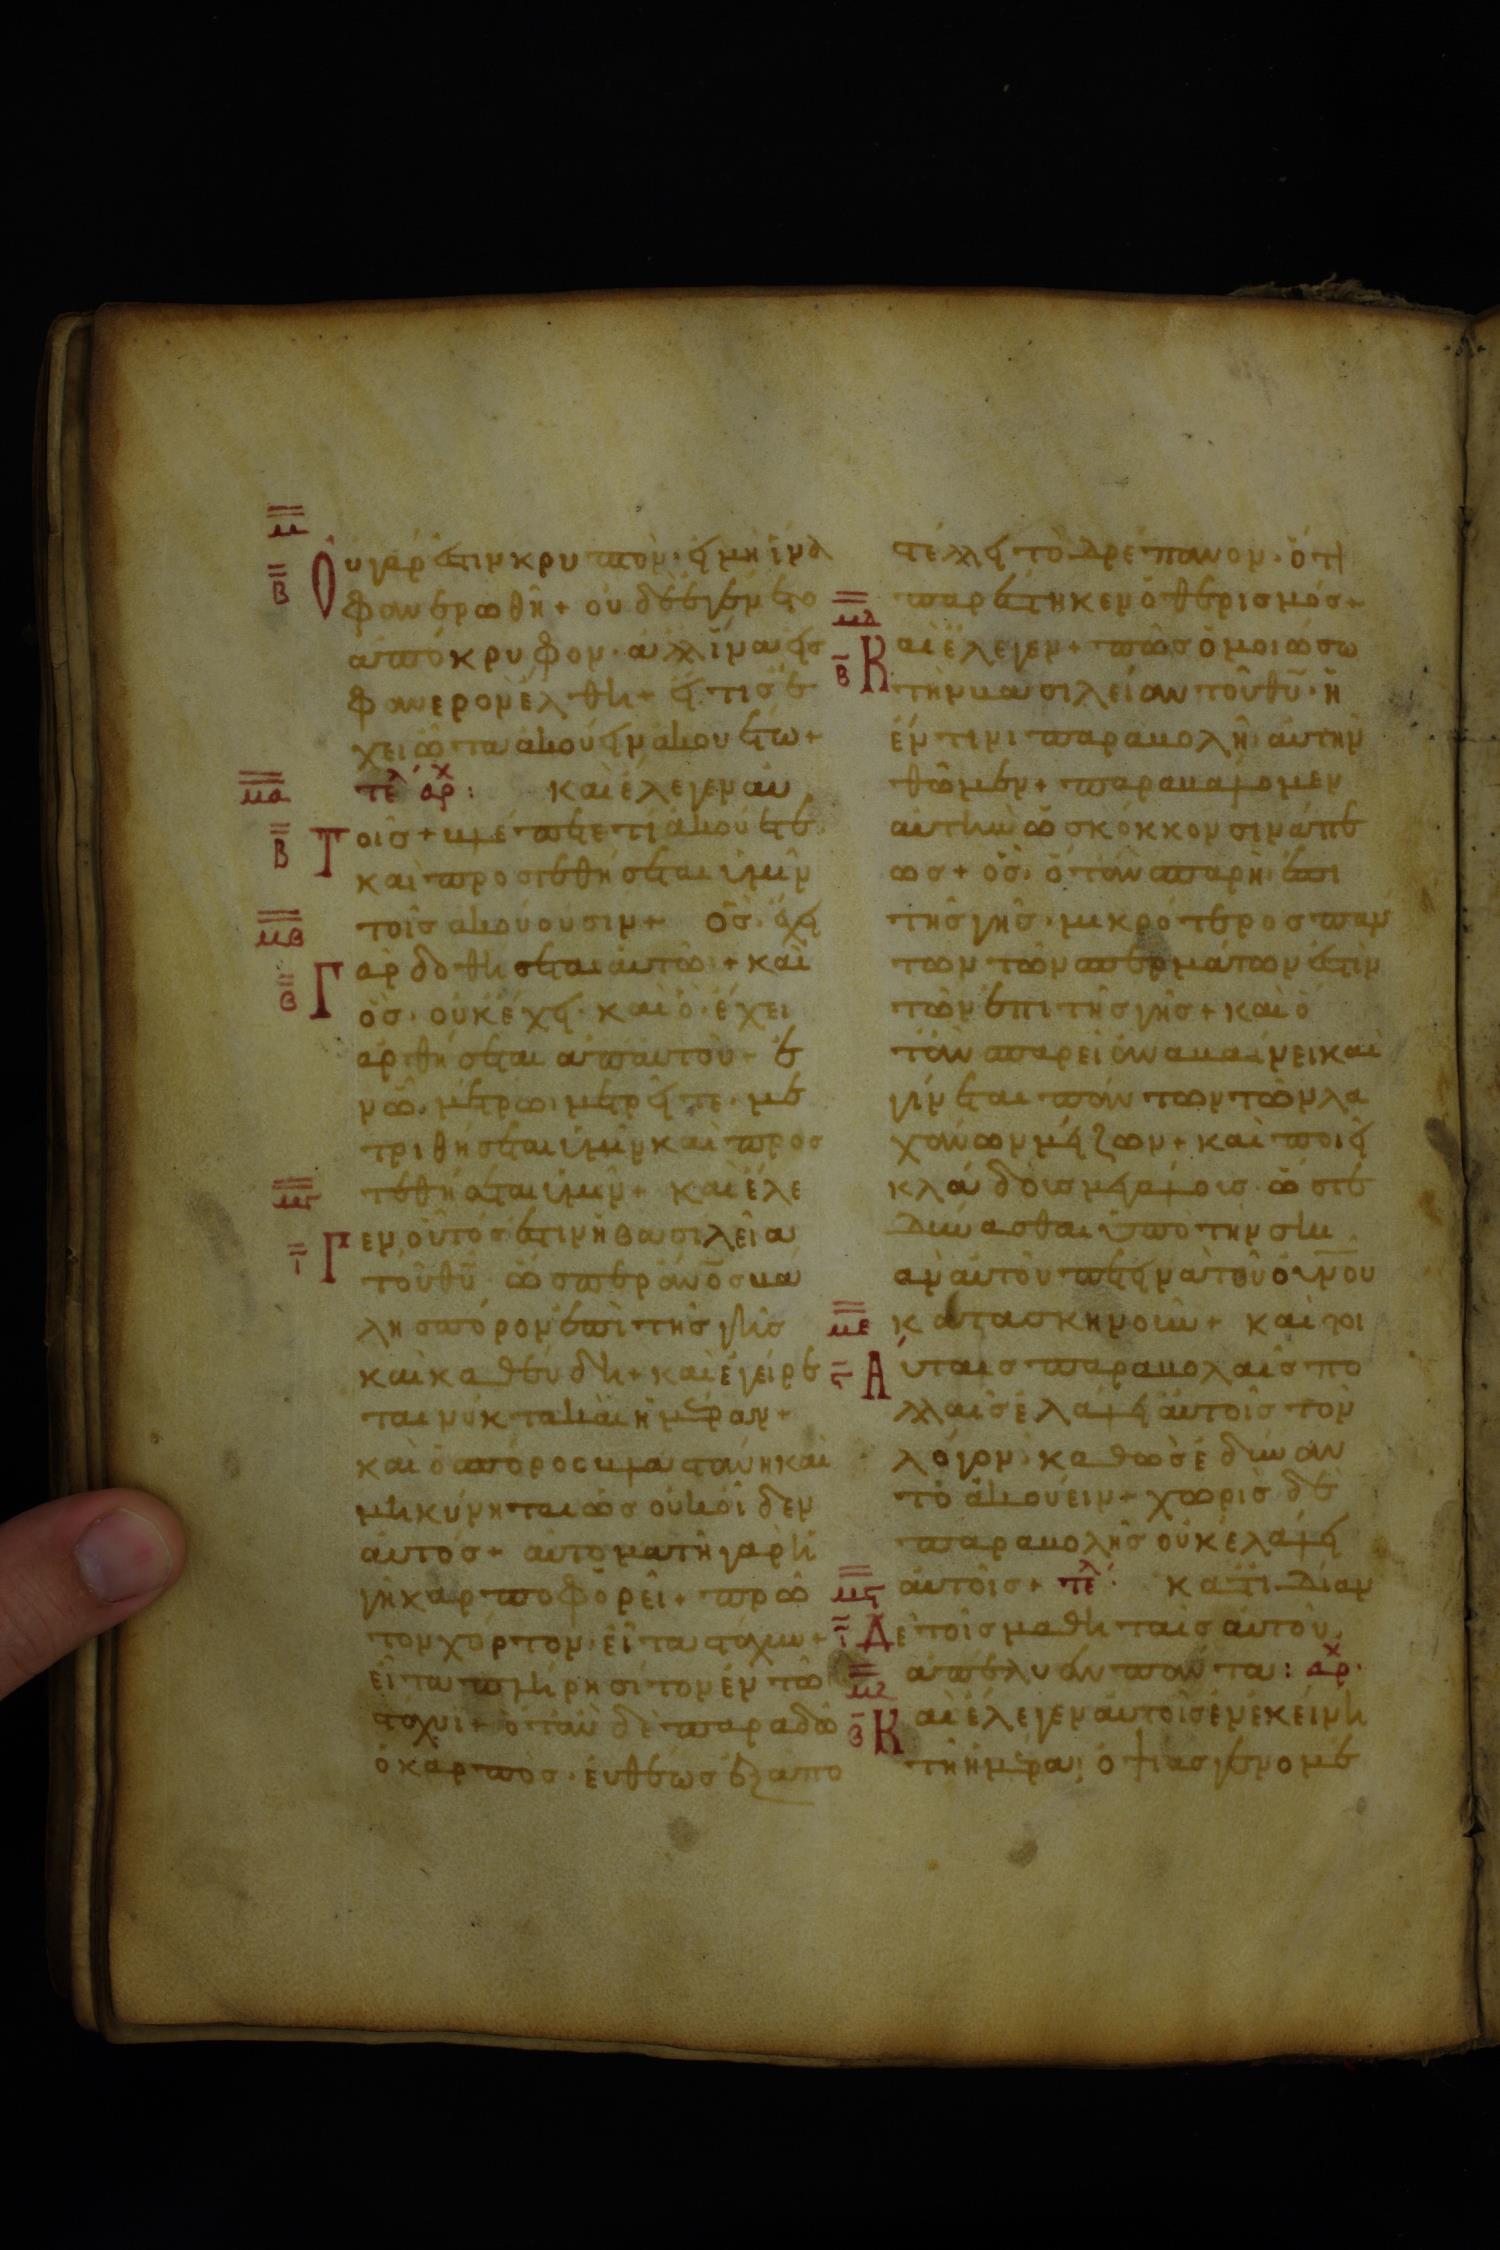 μ
β
Ου γάρ ἐστιν κρυπτὸν· εἰ μὴ ἵνα
φανερωθῆ+ οὐδὲ ἐγένετο
ἀπόκρυφον· ἀλλ ἵνα εἰς
φανερὸν ἔλθη+ εἴ τις ἔ
χει ὦτα ἀκούειν ἀκουέτω+
μα
τελ αρχ: καὶ ἔλεγεν αὐ
β
Τοῖς+ βλέπετε τί ἀκούετε
καὶ προστεθήσεται ὑμῖν
τοῖς ἀκούουσιν+ ὃς· ἔχει
μβ
β
Γὰρ δοθήσεται αὐτῶ+ καὶ
ὃς· οὐκ ἔχει· καὶ ὃ· ἔχει
ἀρθήσεται ἀπ αὐτοῦ+ ἐ
ν ὧ· μέτρω· μετρεῖτε· με
τριθήσεται ὑμῖν καὶ προς
τεθήσεται ὑμῖν+ καὶ ἔλε
μγ
ι
Γεν οὕτός ἐστιν ἡ βασιλεία
τοῦ θυ· ὡς περ ἀνος βα
λη σπόρον ἐπὶ τῆς γῆς
καὶ καθεύδη+ καὶ ἐγείρε
ται νύκτα καὶ ἡμέραν+
καὶ ὁ σπόρος βλαστάνη καὶ
μηκύνηται ὡς οὐκ οἶδεν
αὐτός+ αὐτοματὴ γὰρ ἡ
γῆ καρποφορεῖ+ πρῶ
τον χόρτον· εἶτα σταχυν+
εἶτα πλήρη σίτον ἐν τῶ
στάχυι+ ὅταν δὲ παραδῶ
ὁ καρπὸς· ἐυθέως ἐξαπο
στέλλει τὸ δρέπανον· ὅτι
παρέστηκεν ὁ θερισμός+
μδ
β
Και ἔλεγεν+ πῶς ὁμοιώσω
τὴν βασιλείαν τοῦ θυ· ἢ
ἐν τίνι παραβολῆ· αὐτὴν
θῶμεν+ παραβάλομεν
αὐτὴν ὡς κόκκον σινάπε
ως+ ὃς· ὅταν σπαρῆ· ἐπι
τῆς γῆς· μικρότερος παν
των τῶν σπερμάτων ἐστὶν
τῶν ἐπι τῆς γῆς+ καὶ ὅ
τὰν σπαρεῖ ἀναβαίνει και
γίνεται πάν των τῶν λα
χάνων μείζων+ καὶ ποιεῖ
κλάδους μεγάλους· ὥστε
δύνασθαι ὑπὸ τὴν σκι
ὰν αὐτοῦ πετεινὰ τοῦ ουνου
κατασκηνοιῦν+ καὶ τοι
με
ς
Αύταις παραβολαῖς πο
λλαῖς ἐλάλει αὐτοῖς τὸν
λόγον· καθὼς ἐδύναν
το ἀκούειν+ χωρὶς δὲ
παραβολῆς οὐκ ἐλάλει
αὐτοῖς+ τελ· κατ ἰδίαν
μς
ι
Δὲ τοῖς μαθηταῖς αὐτοῦ
ἀπέλυεν πάντα: αρχ
μζ
β
Και ἔλεγεν αὐτοῖς ἐν ἐκείνη
τῆ ἡμέρα· ὀψίας γενομέ